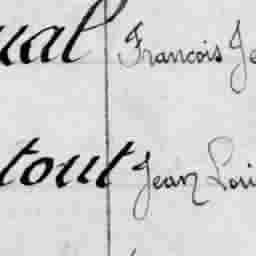 ual François Je
tout Jean Loui